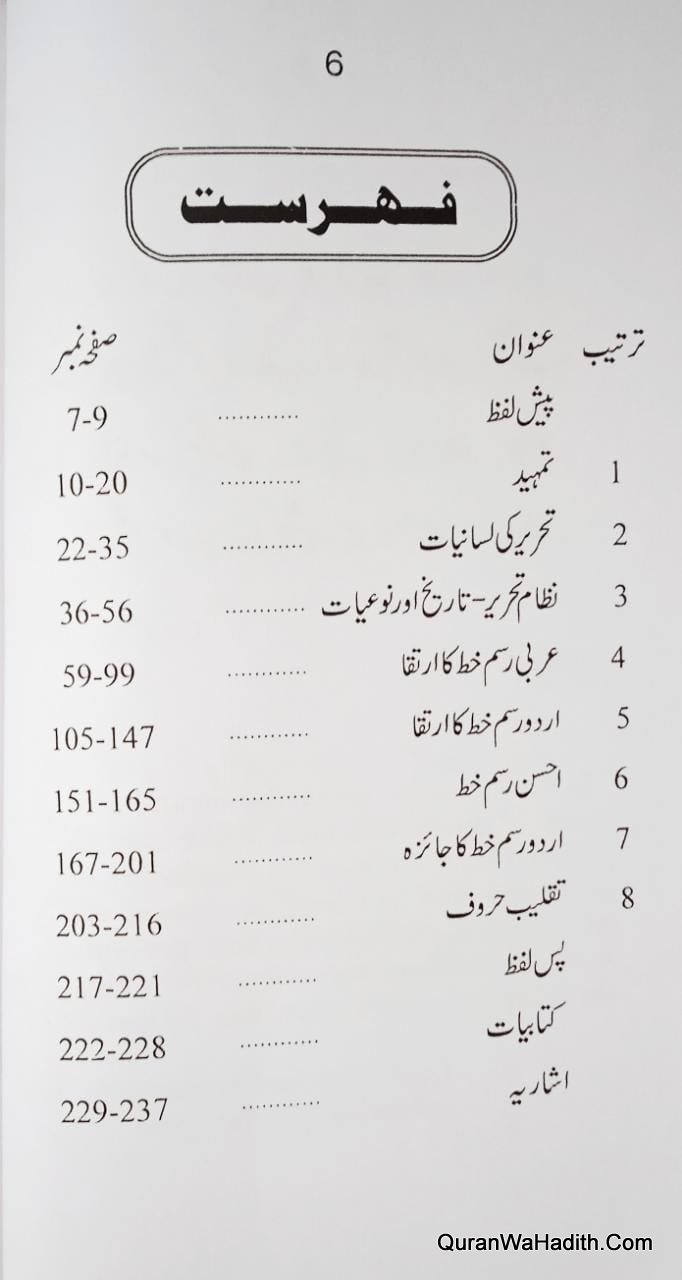 6
فہرست
ترتیب عنوان صفحہ نمبر
پیش لفظ ............ 7-9
1 تمہید ............ 10-20
2 تحریر کی لسانیات ............ 22-35
3 نظام تحریر – تاریخ اور نوعیات ............ 36-56
4 عربی رسم خط کا ارتقا ............ 59-99
5 اردو رسم خط کا ارتقا ............ 105-147
6 احسن رسم خط ............ 151-165
7 اردو رسم خط کا جائزہ ............ 167-201
8 تقلیب حروف ............ 203-216
پس لفظ ............ 217-221
کتابیات ............ 222-228
اشاریہ ............ 229-237
QuranWaHadith.Com